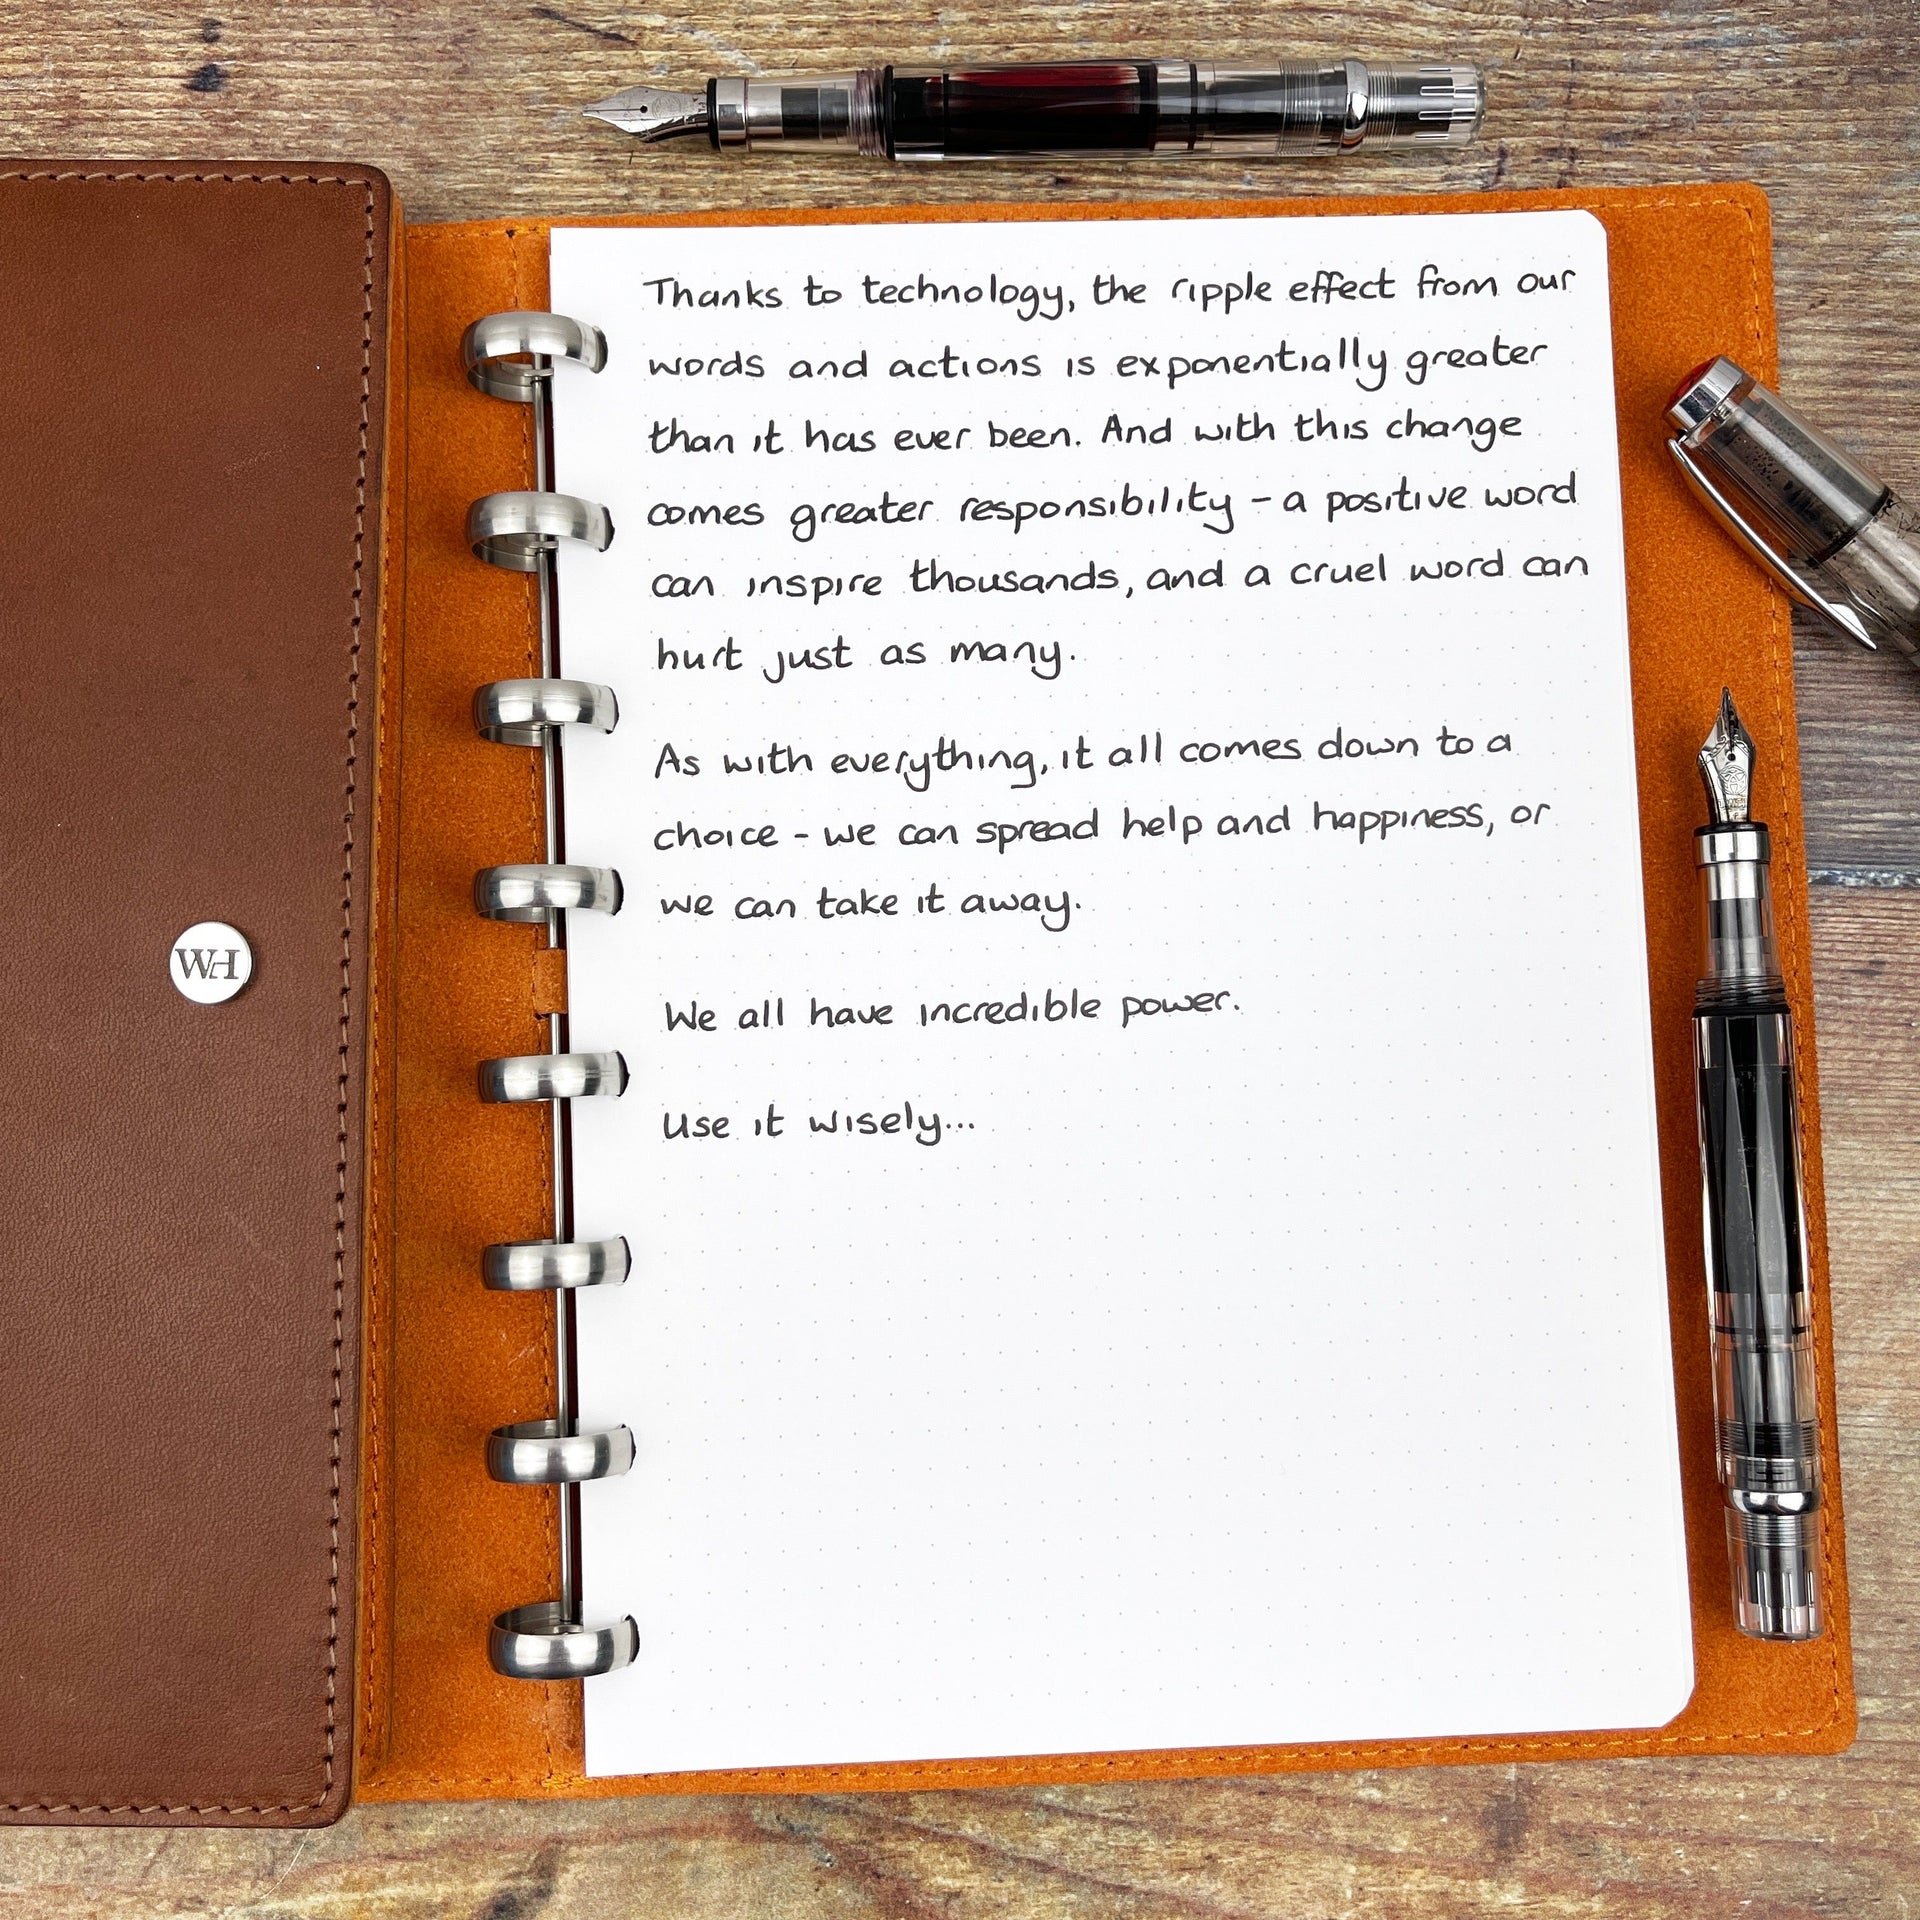 WH
Thanks to technology, the ripple effect from our
words and actions is exponentially greater
than it has ever been. And with this change
comes greater responsibility - a positive word
can inspire thousands, and a cruel word can
hurt just as many.
As with everything, it all comes down to a
choice - we can spread help and happiness, or
we can take it away.
We all have incredible power.
Use it wisely...